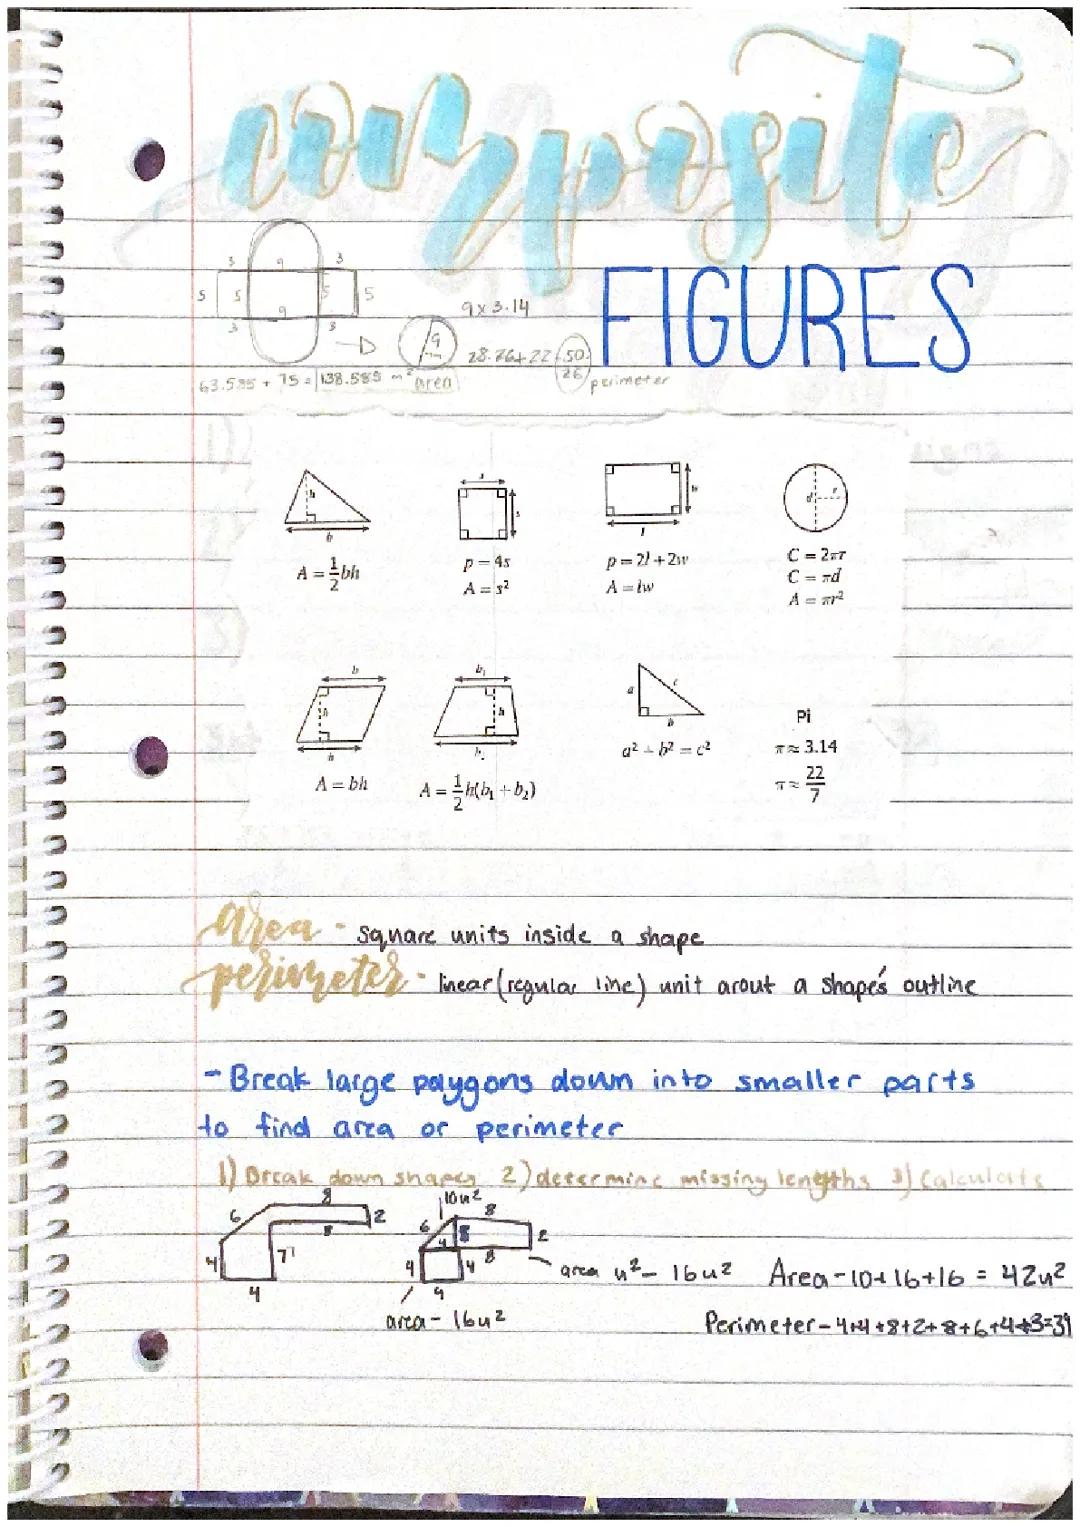 composite
FIGURES
3 9 3
5 5 5 5
9
3 3
9
9 x 3.14
28.26 + 22 = 50.26 perimeter
63.585 + 75 = 138.585 m² area
h
b
A = 1/2 bh
s
s
p = 4s
A = s²
w
l
p = 2l + 2w
A = lw
d r
C = 2πr
C = πd
A = πr²
b
h
b
A = bh
b₁
h
A = 1/2 h(b₁ + b₂)
a c
b
a² + b² = c²
Pi
π ≈ 3.14
π ≈ 22/7
area - square units inside a shape
perimeter - linear (regular line) unit arout a shape's outline
- Break large polygons down into smaller parts
to find area or perimeter
1) Break down shapes 2) determine missing lengths 3) Calculate
8
6 8 2
4 7
4
10u²
8
6 4 8 2
4 4 8
4
area u² - 16u²
area - 16u²
Area - 10 + 16 + 16 = 42u²
Perimeter - 4+4+8+2+8+6+4+3=39